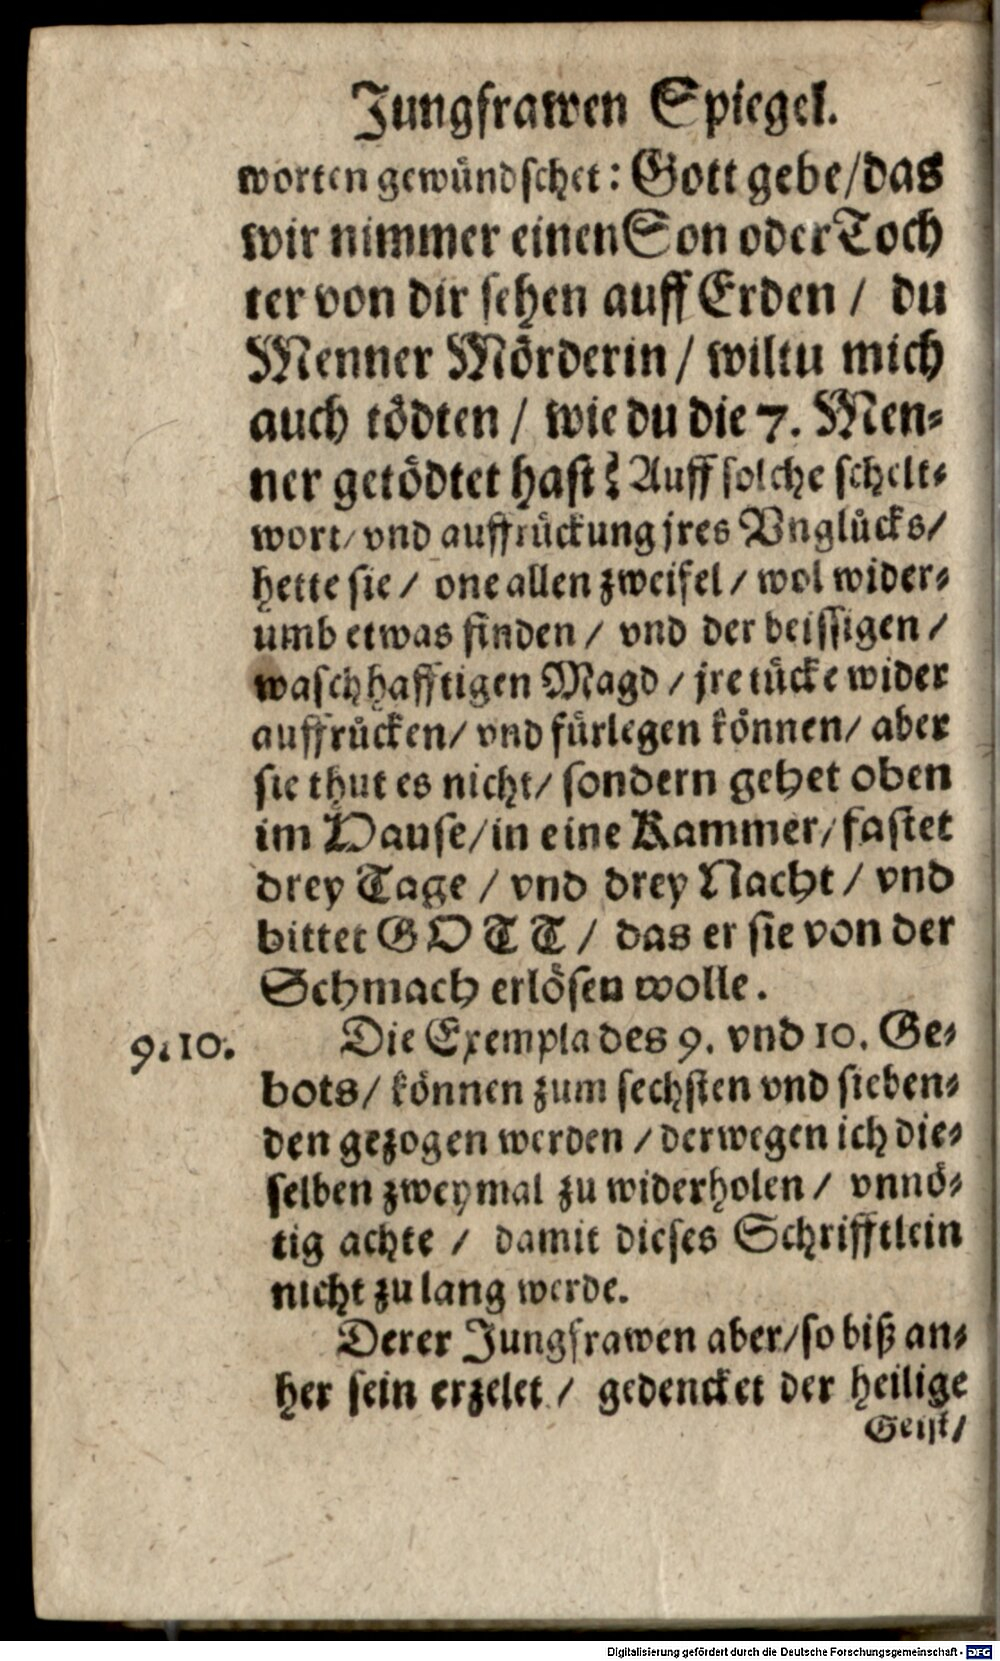 Jungfrawen Spiegel.
worten gewündschet: Gott gebe/das
wir nimmer einen Son oder Toch
ter von dir sehen auff Erden / du
Menner Mörderin / wiltu mich
auch tödten / wie du die 7. Men-
ner getödtet hast? Auff solche schelt-
wort/ vnd auffrückung jres Vnglücks/
hette sie / one allen zweifel / wol wider-
umb etwas finden / vnd der beissigen /
waschhafftigen Magd / jre tücke wider
auffrücken/ vnd fürlegen können/ aber
sie thut es nicht/ sondern gehet oben
im Hause/in eine Kammer/ fastet
drey Tage / vnd drey Nacht / vnd
bittet GOTT / das er sie von der
Schmach erlösen wolle.
9. 10.
Die Exempla des 9. vnd 10. Ge-
bots/ können zum sechsten vnd sieben-
den gezogen werden / derwegen ich die-
selben zweymal zu widerholen / vnnö-
tig achte / damit dieses Schrifftlein
nicht zu lang werde.
Derer Jungfrawen aber/so biß an-
her sein erzelet / gedencket der heilige
Geist/
Digitalisierung gefördert durch die Deutsche Forschungsgemeinschaft - DFG